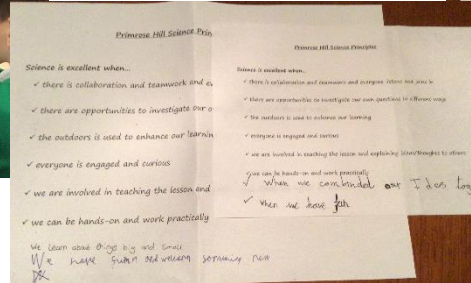 Primrose Hill Science Prin
Science is excellent when...
✓ there is collaboration and teamwork and ev
✓ there are opportunities to investigate our o
✓ the outdoors is used to enhance our learnin
✓ everyone is engaged and curious
✓ we are involved in teaching the lesson and
✓ we can be hands-on and work practically
We learn about things big and small
We have and something new
Primrose Hill Science Principles
Science is excellent when...
✓ there is collaboration and teamwork and everyone listens and joins in
✓ there are opportunities to investigate our own questions in different ways
✓ the outdoors is used to enhance our learning
✓ everyone is engaged and curious
✓ we are involved in teaching the lesson and explaining ideas/thoughts to others
✓ we can be hands-on and work practically
✓ When we combinded our Ideas tog
✓ when we have fun